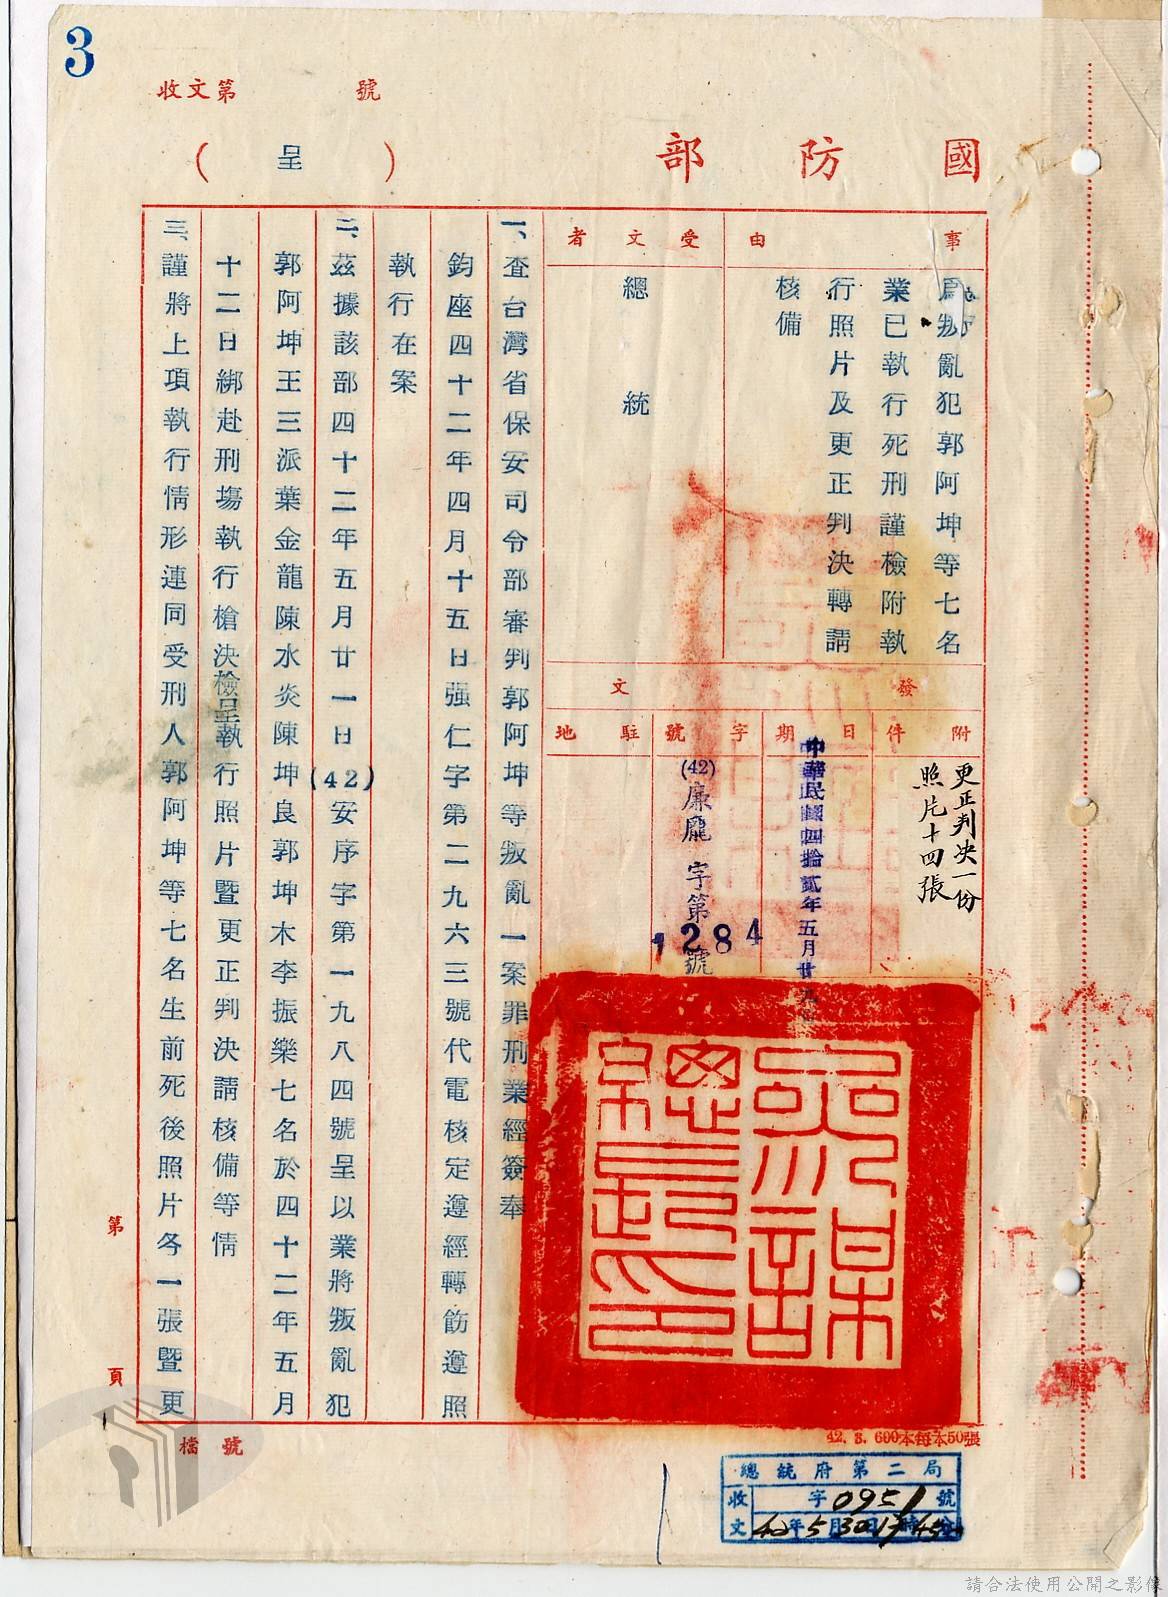 3
收文第 號
國防部
(呈)
事由
為叛亂犯郭阿坤等七名
業已執行死刑謹檢附執
行照片及更正判決轉請
核備
受文者
總統
發文
附件
更正判決一份
照片十四張
日期
中華民國四拾貳年五月廿九日
字號
(42)廉龐字第1284號
駐地
一、查台灣省保安司令部審判郭阿坤等叛亂一案罪刑業經簽奉
鈞座四十二年四月十五日强仁字第二九六三號代電核定遵經轉飭遵照
執行在案
二、茲據該部四十二年五月廿一日(42)安序字第一九八四號呈以業將叛亂犯
郭阿坤王三派葉金龍陳水炎陳坤良郭坤木李振樂七名於四十二年五月
十二日綁赴刑場執行槍決檢呈執行照片暨更正判決請核備等情
三、謹將上項執行情形連同受刑人郭阿坤等七名生前死後照片各一張暨更
第 頁
檔號
42. 3. 600本每本50張
總統府第二局
收文
字0951號
42年5月30日17時45分
請合法使用公開之影像